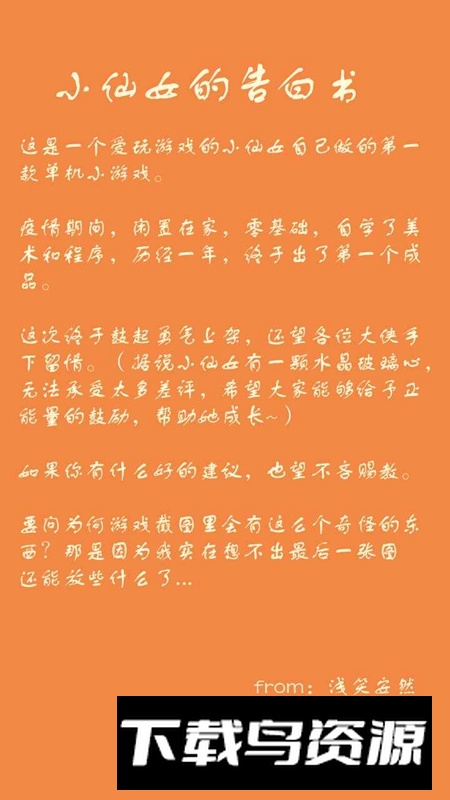 小仙女的告白书
这是一个爱玩游戏的小仙女自己做的第一
款单机小游戏。
疫情期间，闲置在家，零基础，自学了美
术和程序，历经一年，终于出了第一个成
品。
这次终于鼓起勇气上架，还望各位大侠手
下留情。（据说小仙女有一颗水晶玻璃心，
无法承受太多差评，希望大家能够给予正
能量的鼓励，帮助她成长~）
如果你有什么好的建议，也望不吝赐教。
要问为何游戏截图里会有这么个奇怪的东
西？那是因为我实在想不出最后一张图
还能放些什么了...
from：浅笑安然
下载鸟资源